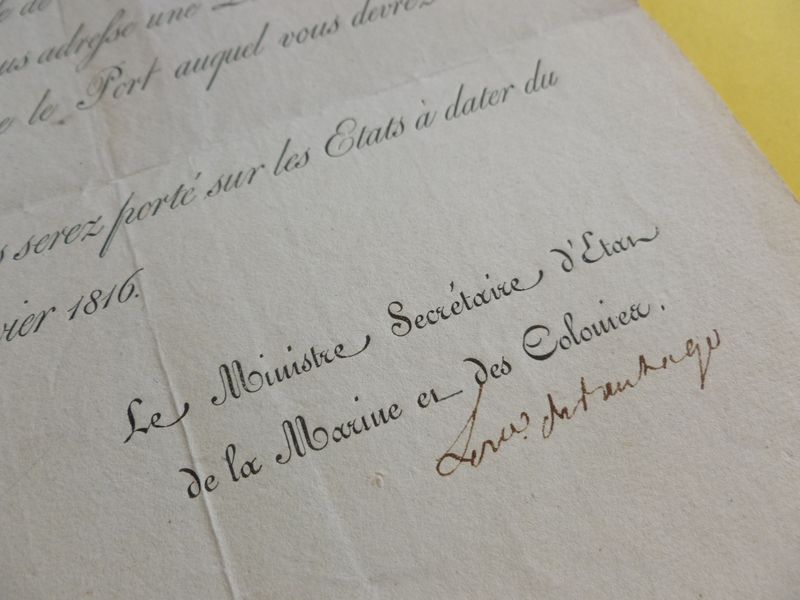 us adresse une
le Port auquel vous devrez
serez porté sur les Etats à dater du
vier 1816.
Le Ministre Secrétaire d'Etat
de la Marine et des Colonies.